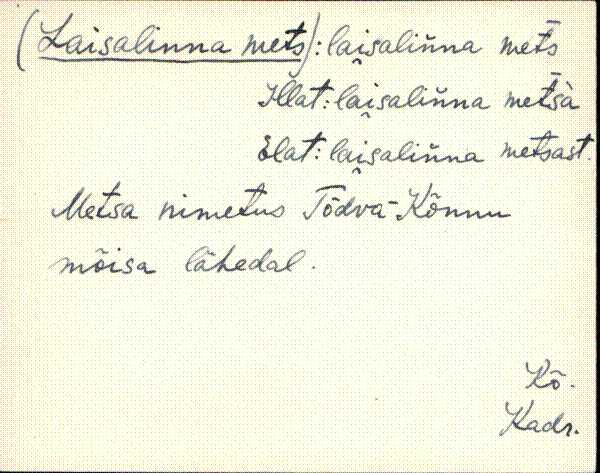 (Laisalinna mets): laisaliňna mets̄
Illat: laisaliňna mets̄à
Elat: laisaliňna metsast.
Metsa nimetus Tõdva-Kõnnu
mõisa lähedal.
Kõ.
Kadr.